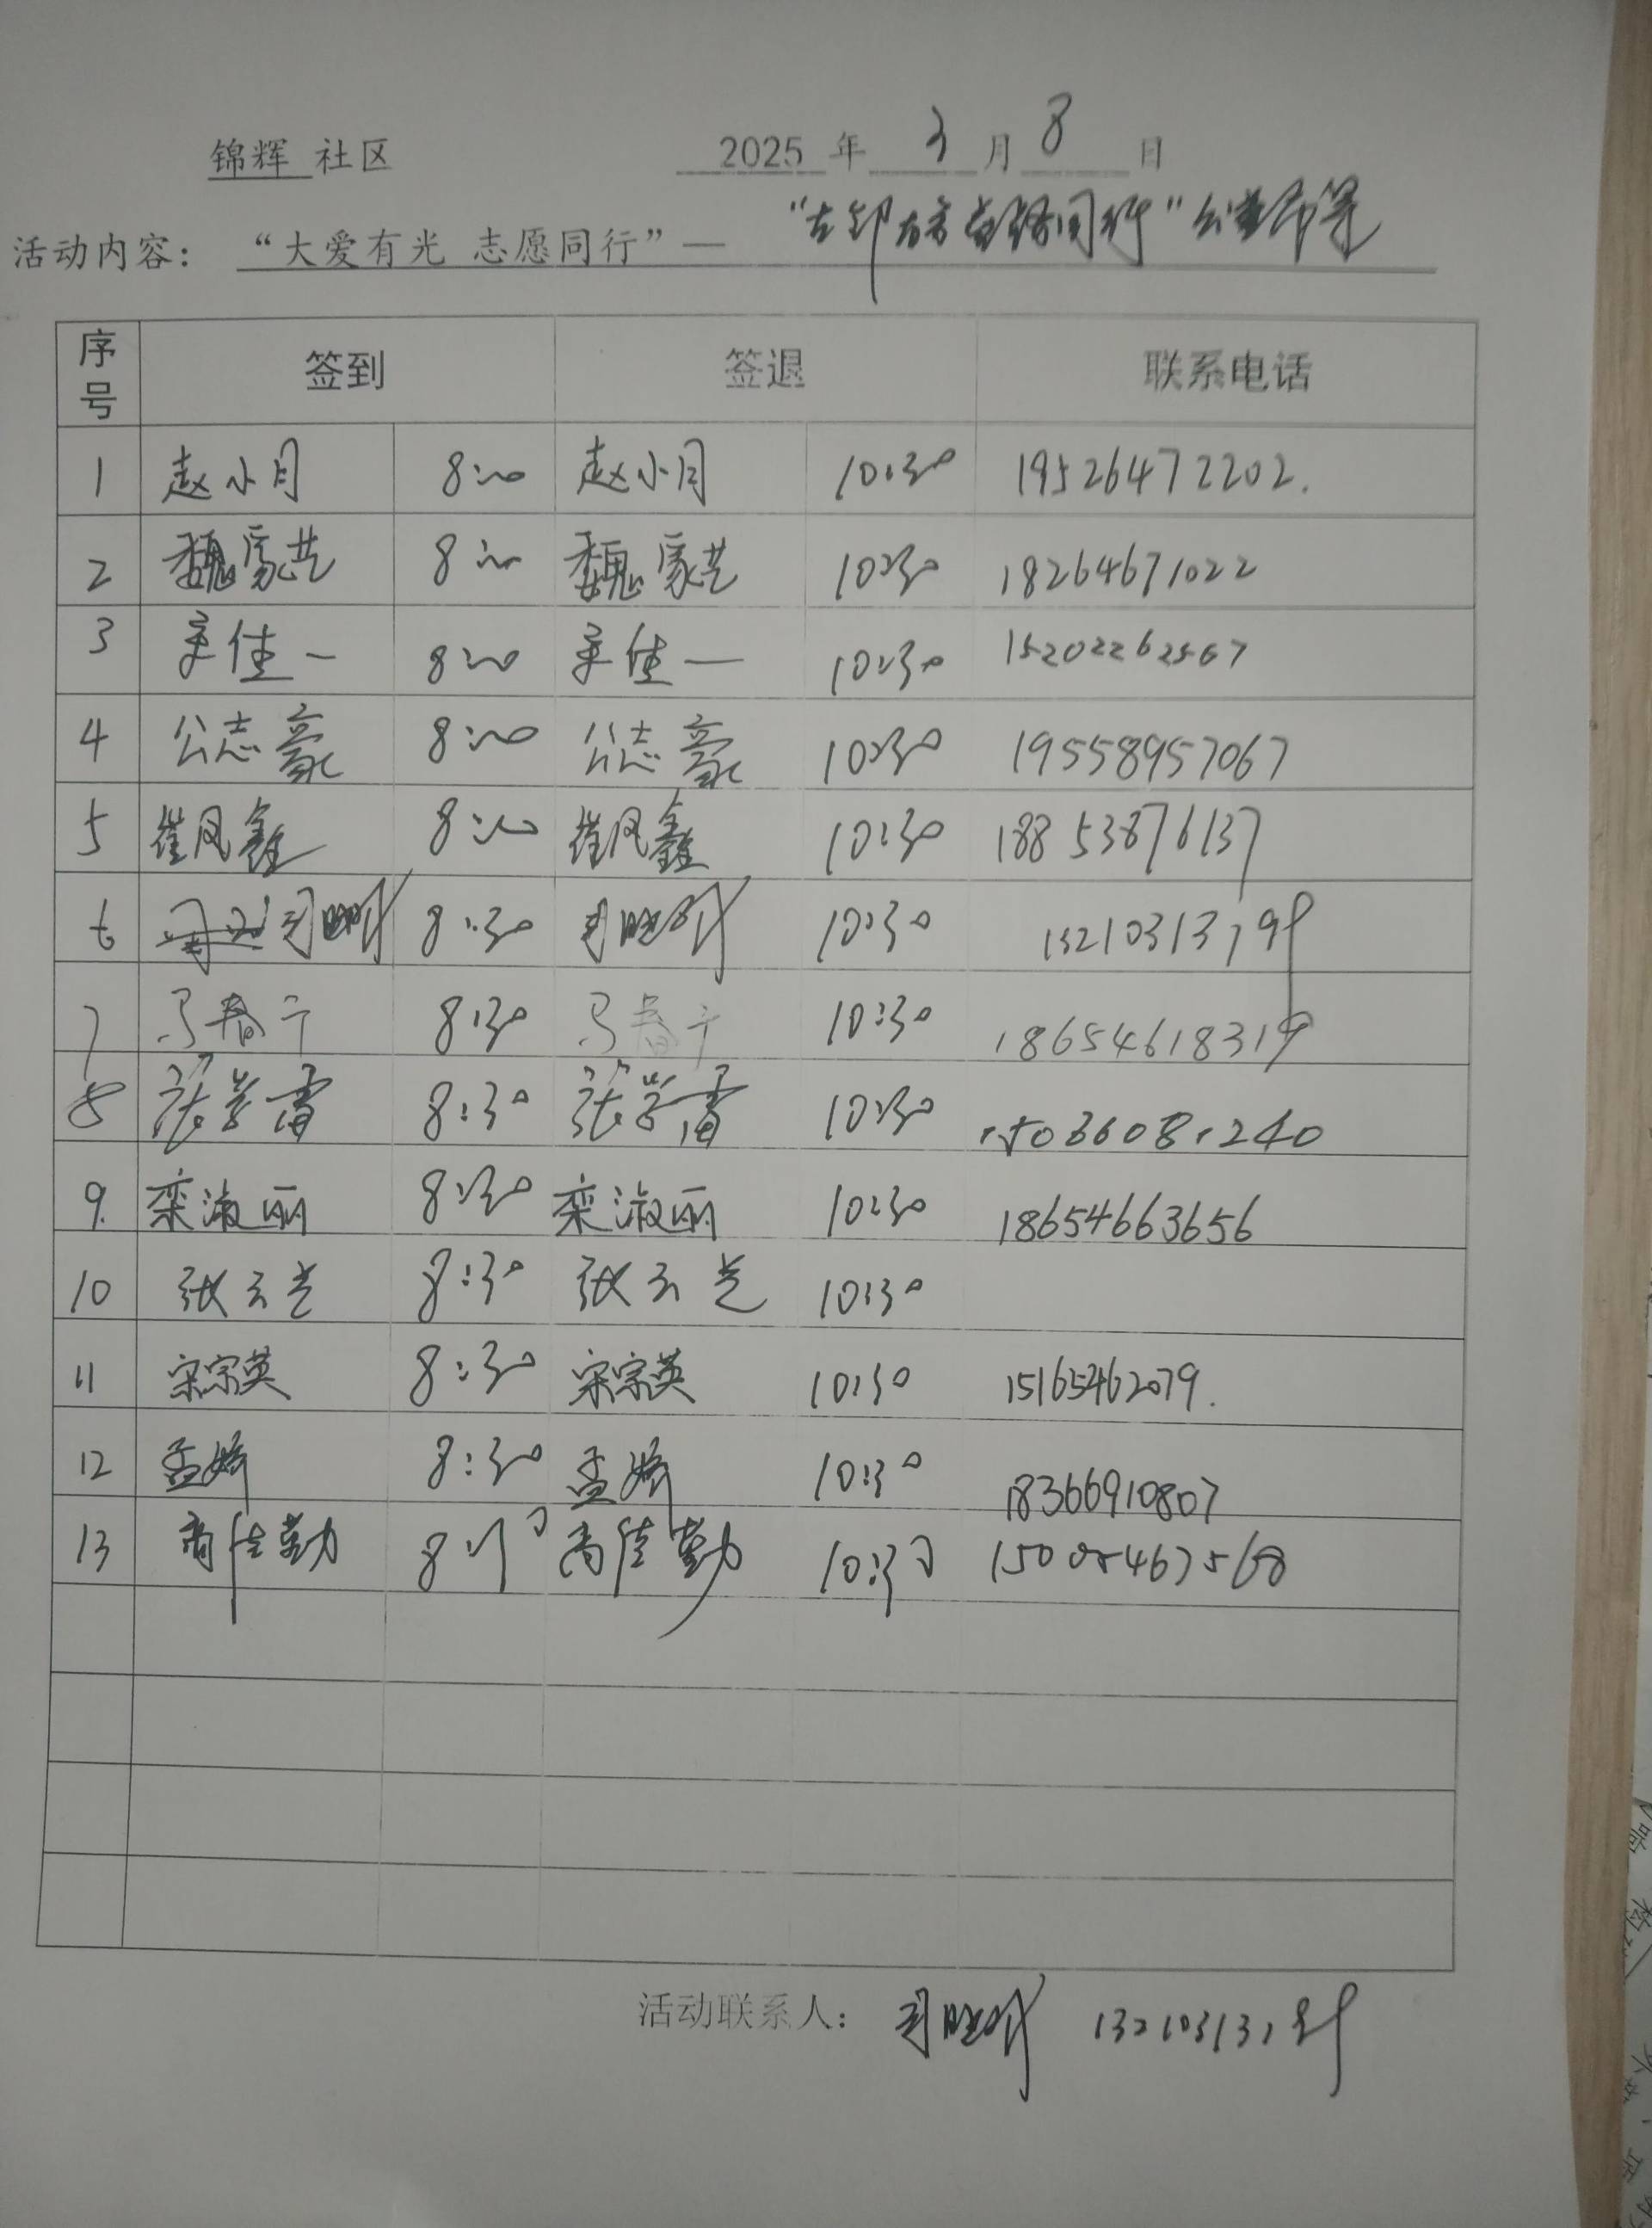 锦辉 社区 2025 年 3 月 8 日
活动内容： “大爱有光 志愿同行”— “左邻右舍 同行”公益市集
序号 签到 签退 联系电话
1 赵小月 8:00 赵小月 10:30 19526472202.
2 魏家芸 8:00 魏家芸 10:30 18264671022
3 佳一 8:00 佳一 10:30 15202262567
4 公志豪 8:00 公志豪 10:30 19558957067
5 崔凤鑫 8:00 崔凤鑫 10:30 18853876137
6 司 8:30 司 10:30
7 马春宁 8:30 马春宁 10:30 18654618319
8 张学雷 8:30 张学雷 10:30 15036081240
9. 栾淑丽 8:30 栾淑丽 10:30 18654663656
10 张云芝 8:30 张云芝 10:30
11 宋宗英 8:30 宋宗英 10:30 15165462079.
12 孟娇 8:30 孟娇 10:30 18366910807
13 商佳勤 8:30 商佳勤 10:30
活动联系人： 司